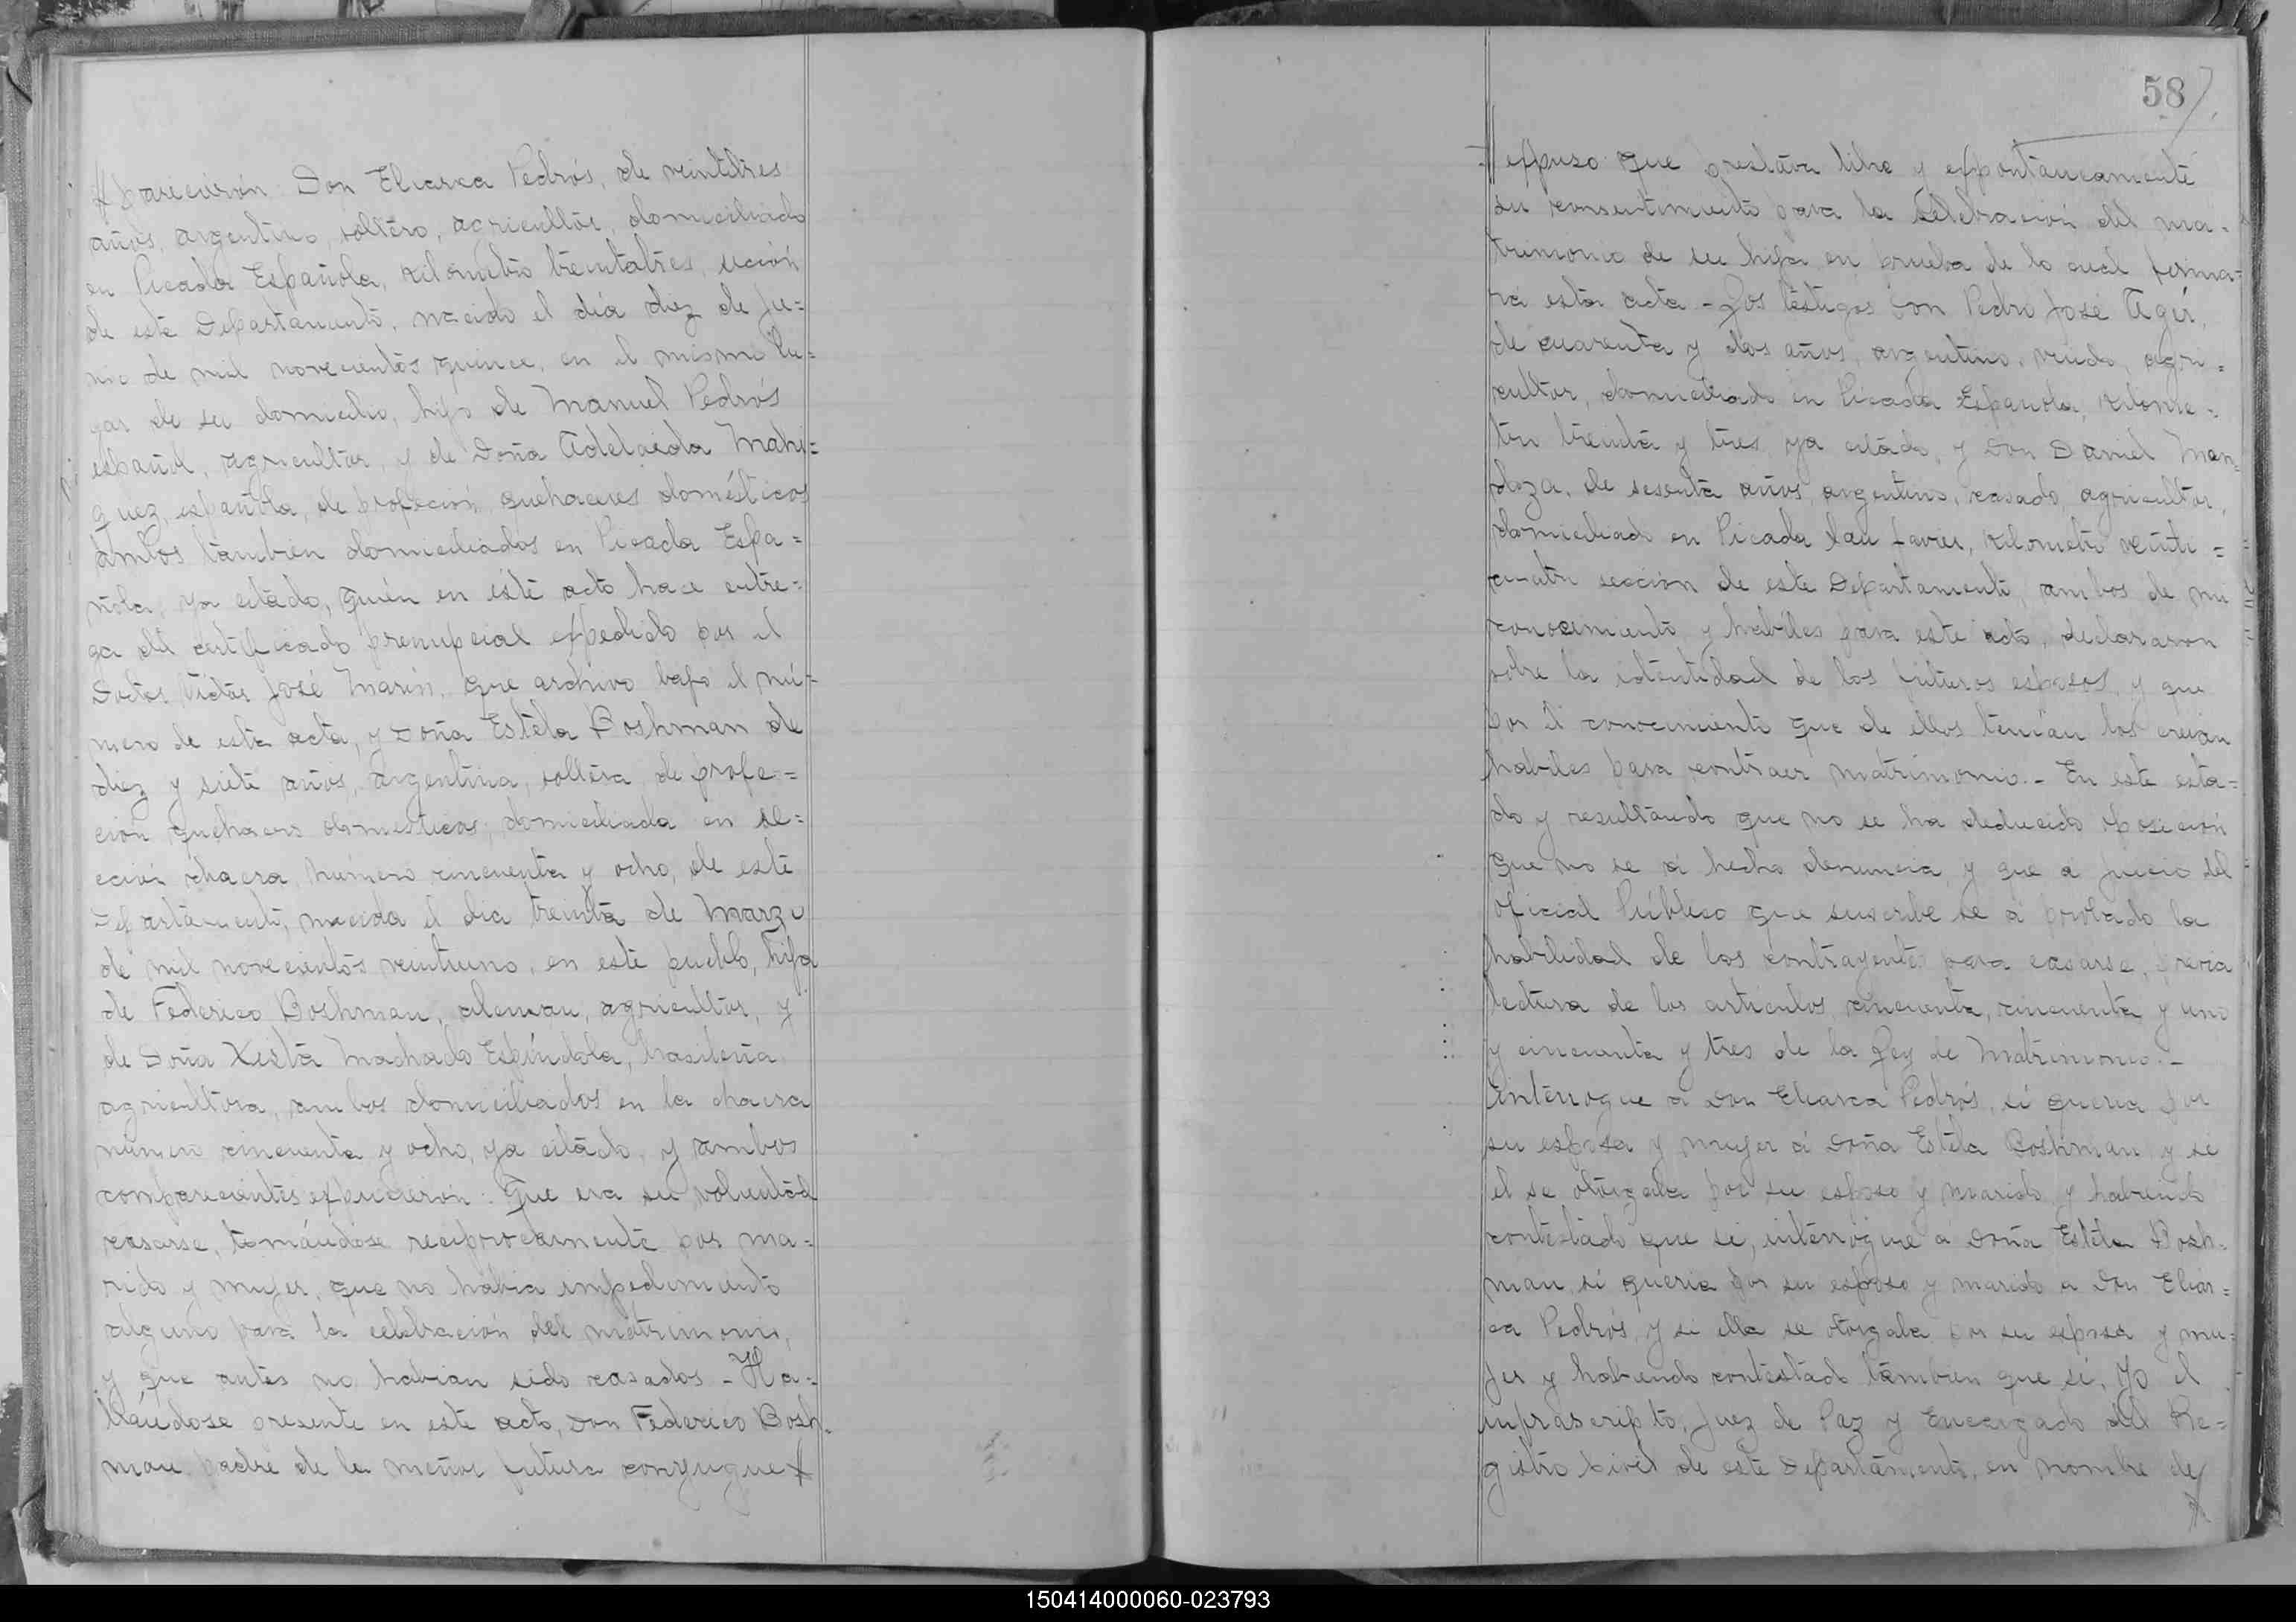 parecieron: Don Eliarca Pedrós, de veintitres
años, argentino, soltero, agricultor, domiciliado
en Picada Española, kilometro treintatres, seción
de este Departamento, nacido el día diez de Ju=
nio de mil novecientos quince, en el mismo lu=
gar de su domicilio, hijo de Manuel Pedrós
español, agricultor, y de Doña Adelaida Mahi=
quez, española, de profeción quehaceres domésticos
ambos tambien domiciliados en Picada Espa=
ñola, ya citado, quién en éste acto hace entre=
ga del certificado prenupcial expedido por el
Doctor Victor José Marin, que archivo bajo el nú=
mero de esta acta, y Doña Estela Boshman de
diez y siete años, argentina, soltera, de profe=
ción quehaceres domesticos, domiciliada en se=
ción chacra, número cincuenta y ocho, de este
Departamento, nacida el dia treinta de Marzo
de mil novecientos veintiuno, en este pueblo, hija
de Federico Boshman, aleman, agricultor, y
de Doña Xista Machado Espíndola, brasileña
agricultora, ambos domiciliados en la chacra
número cincuenta y ocho, ya citado, y ambos
comparecientes expucieron: Que era su voluntad
casarse, tomándose reciprocamente por ma=
rido y mujer, que no habia impedimento
alguno para la celebración del matrimonio,
y que antes no habian sido casados - Ha=
llándose presente en este acto, Don Federico Bosh=
man padre de la menor futura conyugue
58
expuso que prestava libre y expontáneamente
su consentimiento para la celebración del ma=
trimonio de su hija en prueba de lo cual firma=
rá esta acta - Los testigos Don Pedro José
de cuarenta y dos años, argentino, viudo, agri=
cultor, domiciliado en Picada Española, kilome=
tro treinta y tres, ya citado, y Don Daniel Men=
doza, de sesenta años, argentino, casado, agricultor,
domiciliado en Picada San Javier, kilometro veinti=
cuatro seccion de este Departamento, ambos de mi
conocimiento y habiles para este acto, declararon
sobre la identidad de los futuros esposos, y que
por el conocimiento que de ellos tenían los creian
habiles para contraer matrimonio.- En este esta=
do y resultando que no se ha deducido oposición
que no se á hecho denuncia, y que a juicio del
oficial Público que suscribe se á probado la
habilidad de los contrayentes para casarse, previa
lectura de los articulos cincuenta, cincuenta y uno
y cincuenta y tres de la Ley de Matrimonio.-
interrogue a Don Eliarca Pedrós, si queria por
su esposa y mujer á Doña Estela Boshman y si
el se otorgaba por su esposo y marido y habiendo
contestado que si, interrogue a Doña Estela Bosh=
man si queria por su esposo y marido a Don Eliar=
ca Pedrós, y si ella se otorgaba por su esposa y mu=
jer y habiendo contestado tambien que si, Yo el
infrascripto, Juez de Paz y Encargado del Re=
gistro Civil de este Departamento, en nombre de
150414000060-023793